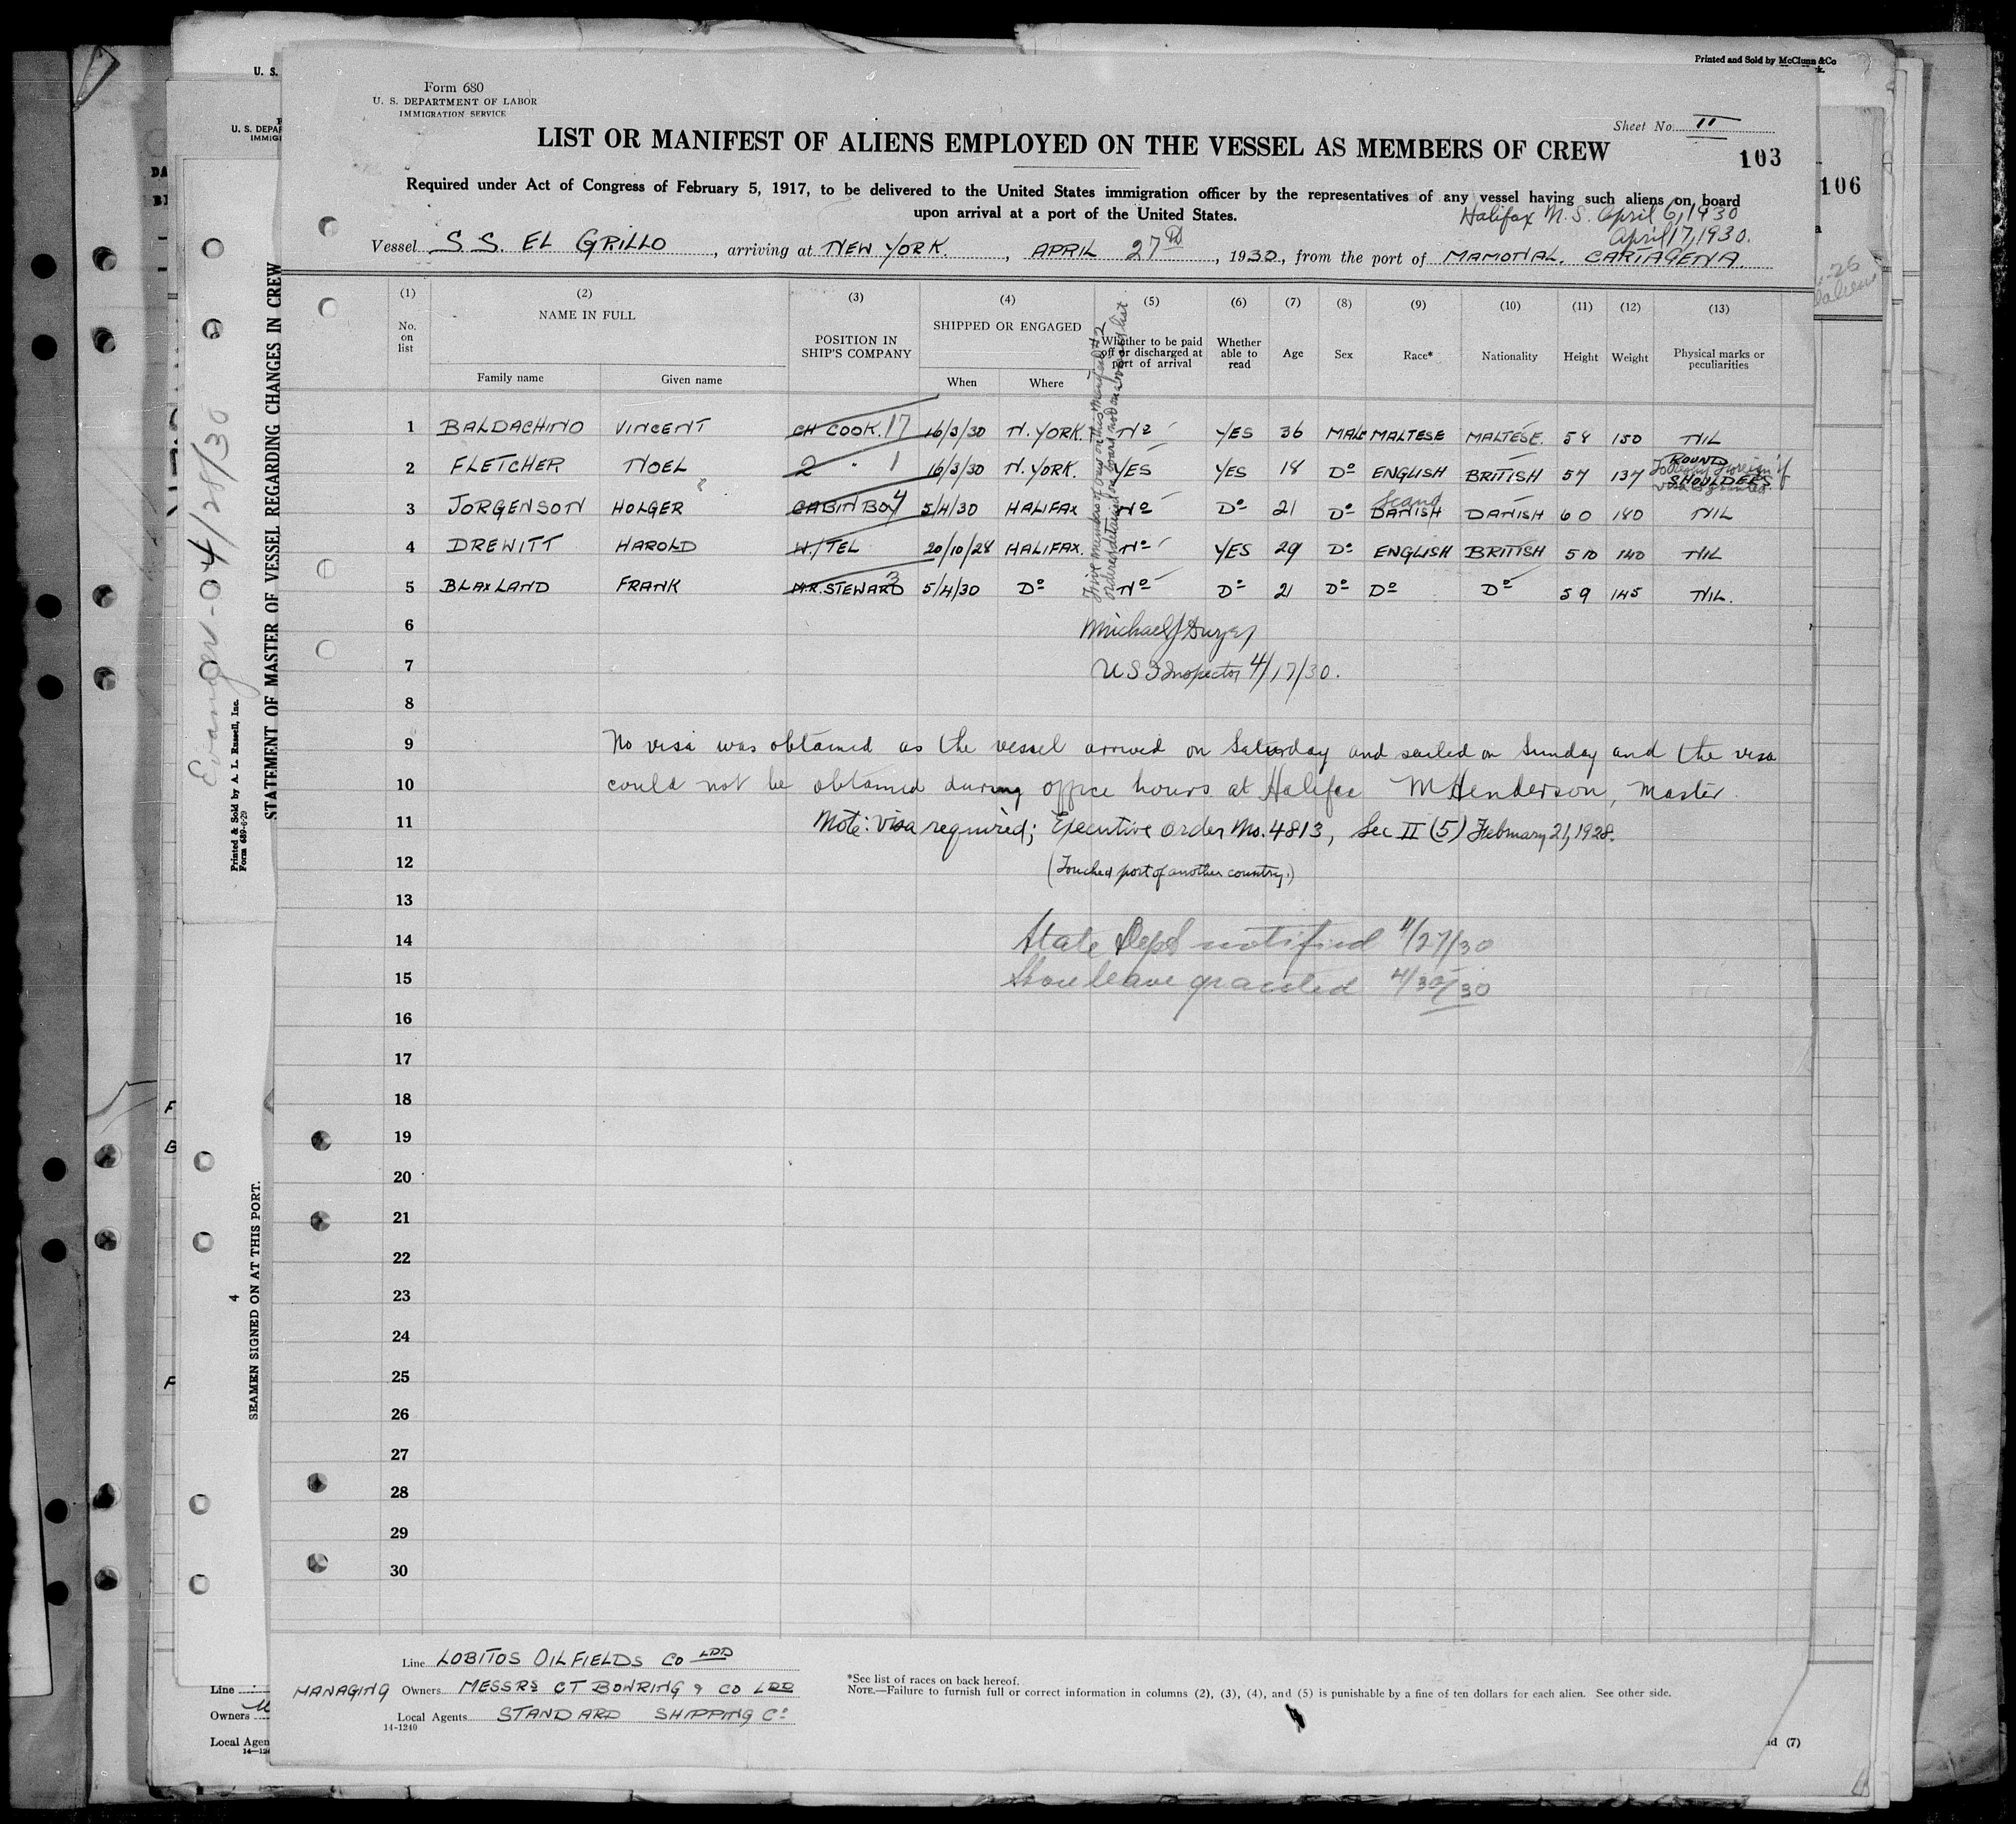 Printed and Sold by McClunn & Co
Form 680
U. S. DEPARTMENT OF LABOR
IMMIGRATION SERVICE
Sheet No. II
LIST OR MANIFEST OF ALIENS EMPLOYED ON THE VESSEL AS MEMBERS OF CREW
103
Required under Act of Congress of February 5, 1917, to be delivered to the United States immigration officer by the representatives of any vessel having such aliens on board
upon arrival at a port of the United States.
Halifax N.S. April 6, 1930
April 17, 1930.
Vessel S.S. EL GRILLO, arriving at NEW YORK., APRIL 27TH, 1930, from the port of MAMONAL. CARTAGENA.
(1) (2) (3) (4) (5) (6) (7) (8) (9) (10) (11) (12) (13)
No. on list NAME IN FULL Family name Given name POSITION IN SHIP'S COMPANY SHIPPED OR ENGAGED When Where Whether to be paid off or discharged at port of arrival Whether able to read Age Sex Race* Nationality Height Weight Physical marks or peculiarities
1 BALDACHINO VINCENT CH COOK. 17 16/3/30 N. YORK. No YES 36 MALE MALTESE MALTESE. 58 150 NIL
2 FLETCHER NOEL 2 " 1 16/3/30 N. YORK. YES YES 18 Do ENGLISH BRITISH 57 137 ROUND SHOULDERS
3 JORGENSON HOLGER CABIN BOY 4 5/4/30 HALIFAX No Do 21 Do Scand DANISH DANISH 60 180 NIL
4 DREWITT HAROLD W/TEL 20/10/28 HALIFAX. No YES 29 Do ENGLISH BRITISH 510 140 NIL
5 BLAXLAND FRANK M.R. STEWARD 3 5/4/30 Do No Do 21 Do Do Do 59 145 NIL.
Five members of crew on this manifest #2
ordered detained on board
6
Michael J Dwyer
7
U S I Inspector 4/17/30.
8
9 No visa was obtained as the vessel arrived on Saturday and sailed on Sunday and the visa
10 could not be obtained during office hours at Halifax M Henderson, Master.
11 Note: Visa required; Executive order No. 4813, Sec II (5) February 21, 1928.
12 (Touched port of another country.)
13
14 State Dept notified 4/27/30
15 Shore leave granted 4/30/30
16
17
18
19
20
21
22
23
24
25
26
27
28
29
30
Line LOBITOS OILFIELDS CO LTD
MANAGING Owners MESSRS CT BOWRING & CO LTD
Local Agents STANDARD SHIPPING Co
14-1240
*See list of races on back hereof.
NOTE.—Failure to furnish full or correct information in columns (2), (3), (4), and (5) is punishable by a fine of ten dollars for each alien. See other side.
STATEMENT OF MASTER OF VESSEL REGARDING CHANGES IN CREW
Printed & Sold by A. L. Russell, Inc.
Form 689-6-29
4
SEAMEN SIGNED ON AT THIS PORT.
U. S.
U. S. DEPAR
IMMIG
106
Line
Owners
Local Agen
(7)